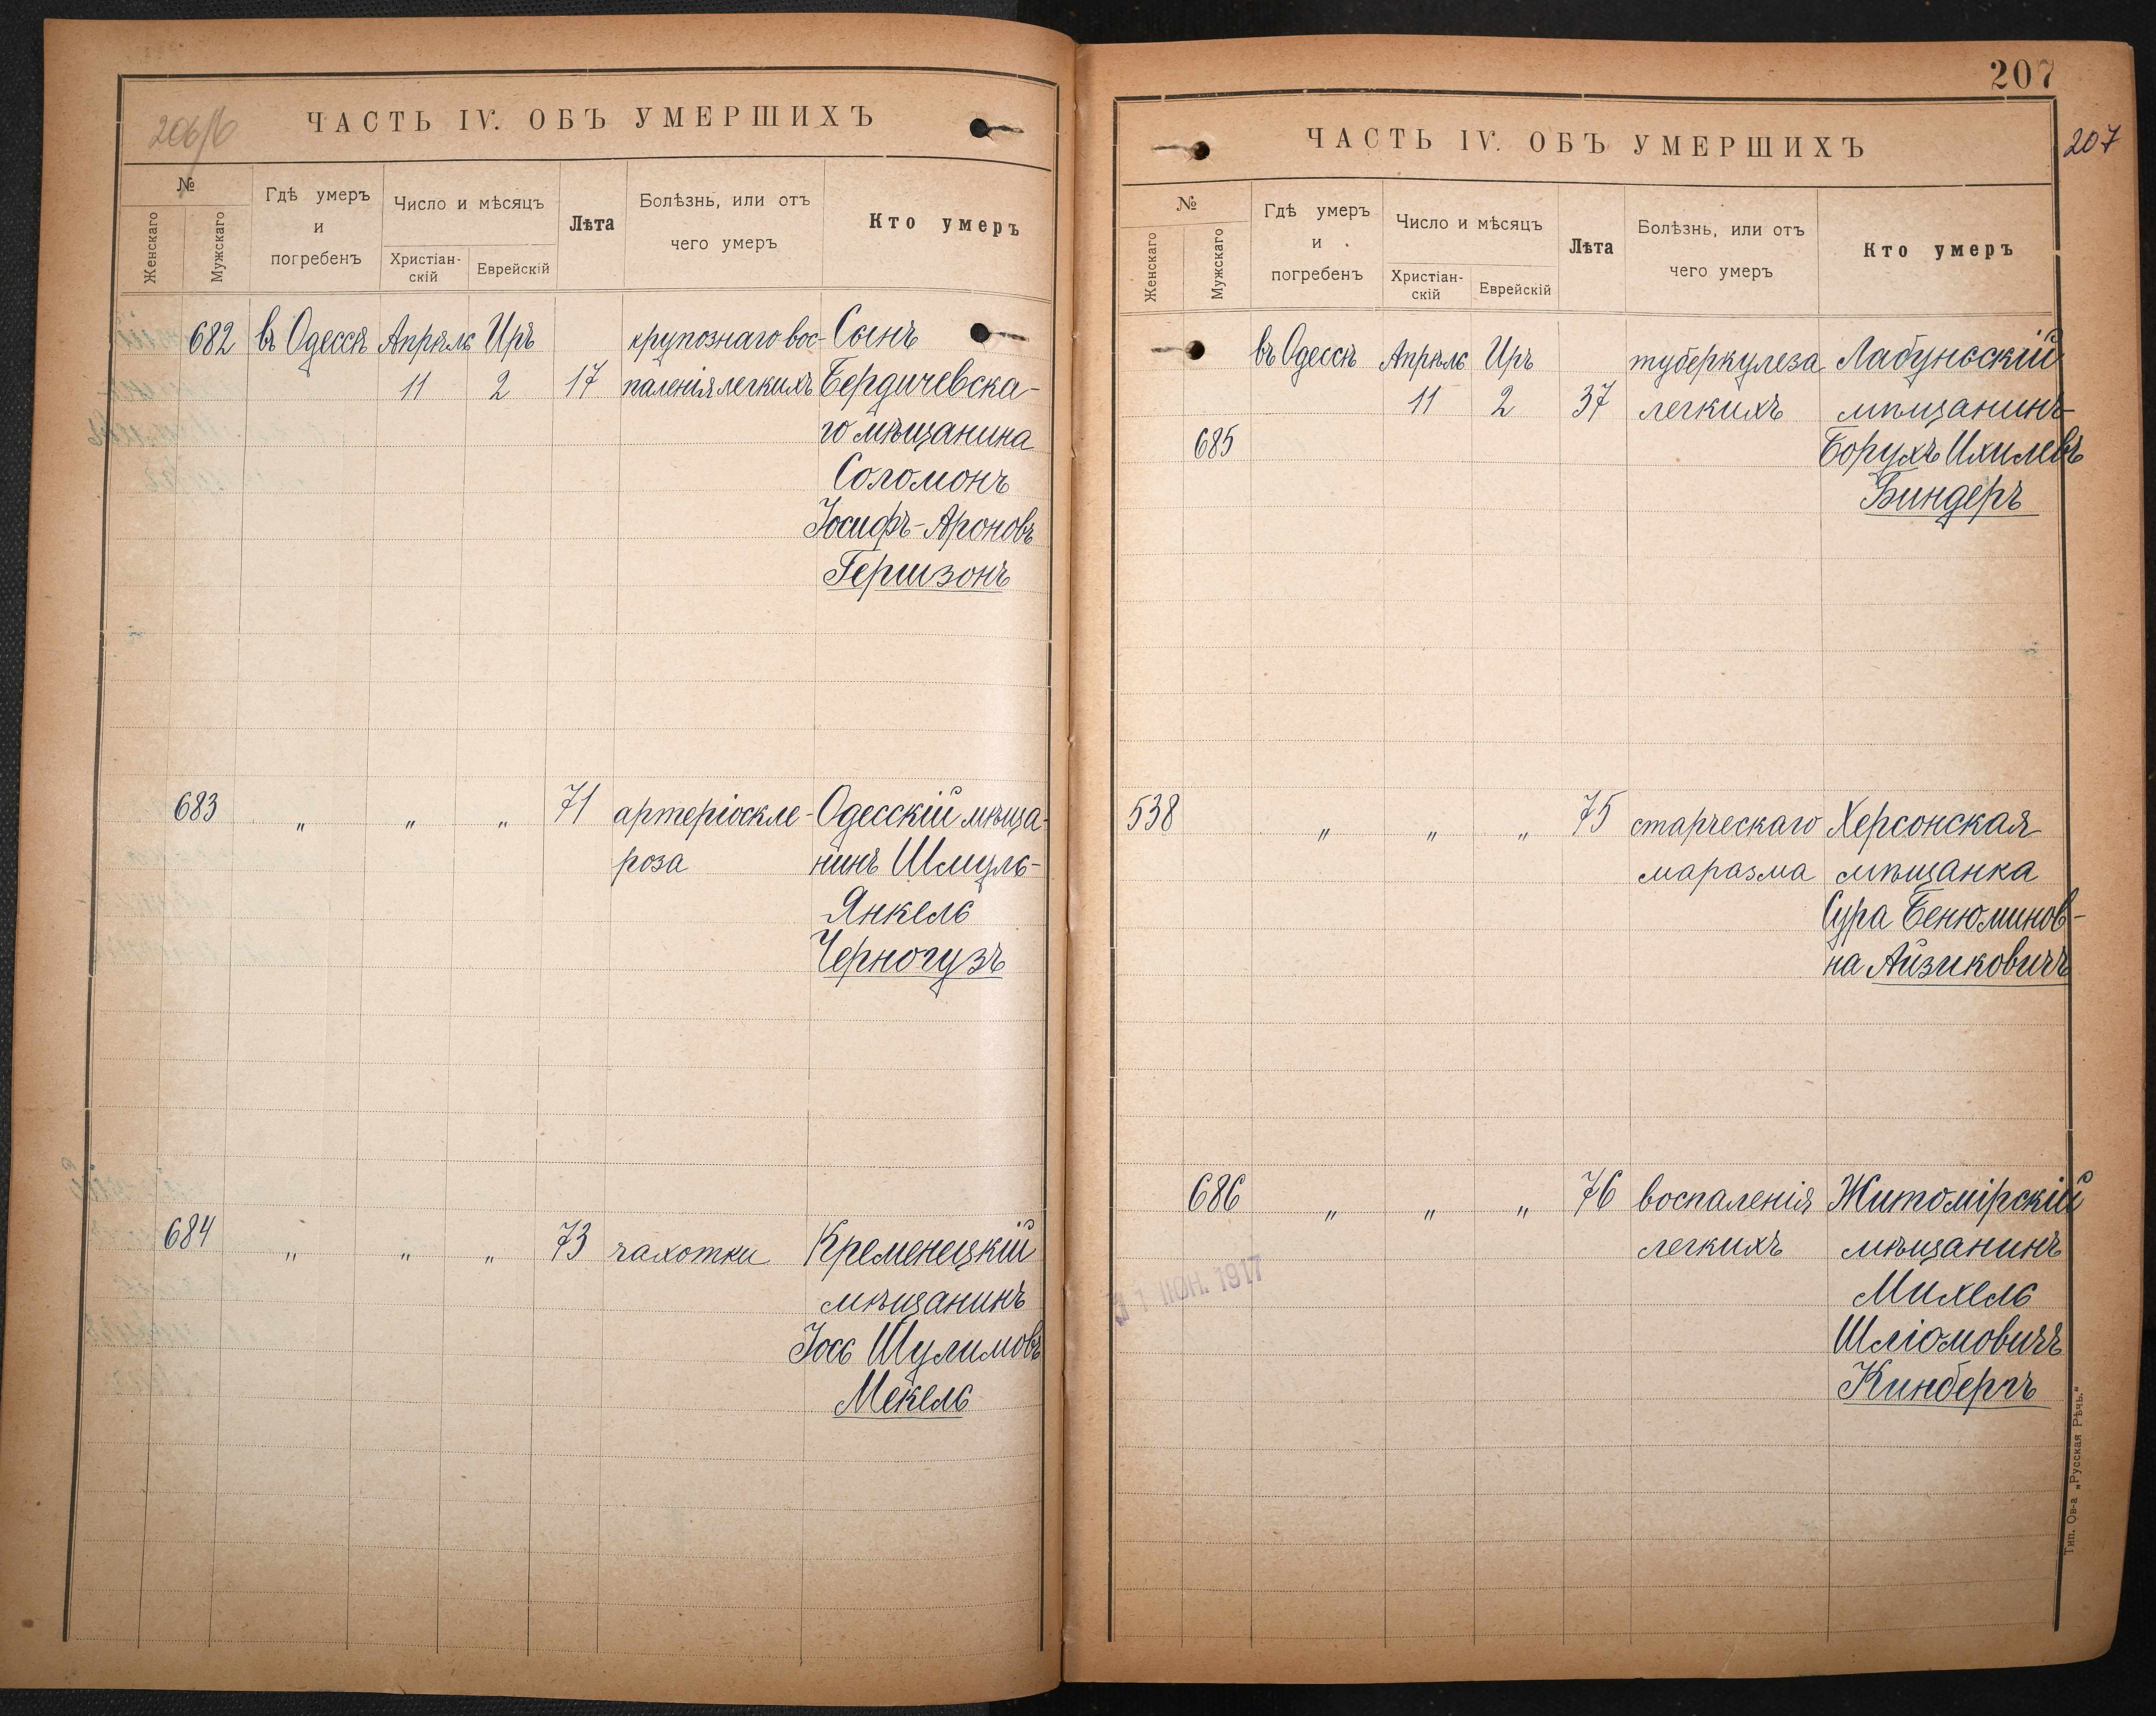 206/б
ЧАСТЬ IV. ОБЪ УМЕРШИХЪ
№
Женскаго
Мужскаго
Гдѣ умеръ
и
погребенъ
Число и мѣсяцъ
Христіан-
скій
Еврейскій
Лѣта
Болѣзнь, или отъ
чего умеръ
Кто умеръ
682 въ Одессѣ Апрѣль Иръ крупознаго вос- Сынъ
11 2 17 паленія легкихъ Бердичевска-
го мѣщанина
Соломонъ
Іосифъ-Ароновъ
Гершзонъ
683 " " " 71 артеріоскле- Одесскій мѣща-
роза нинъ Шмуль-
Янкель
Черногузъ
684 " " " 73 чахотки Кременецкій
мѣщанинъ
Іось Шулимовъ
Мекель
207
207
ЧАСТЬ IV. ОБЪ УМЕРШИХЪ
№
Женскаго
Мужскаго
Гдѣ умеръ
и
погребенъ
Число и мѣсяцъ
Христіан-
скій
Еврейскій
Лѣта
Болѣзнь, или отъ
чего умеръ
Кто умеръ
въ Одессѣ Апрѣль Иръ туберкулеза Лабунсскій
11 2 37 легкихъ мѣщанинъ
685 Борухъ Ихилевъ
Биндеръ
538 " " " 75 старческаго Херсонская
маразма мѣщанка
Сура Бенюминов-
на Айзиковичъ
686 " " " 76 воспаленія Житомірскій
легкихъ мѣщанинъ
Михель
Шліомовичъ
Кинбергъ
1 ІЮН. 1917
Тип. Ов-а „Русская Рѣчь."